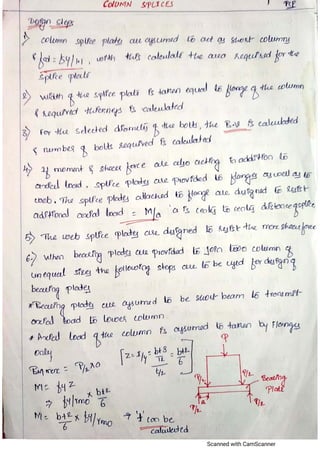 COLUMN SPLICES
Design steps
1) column splice plates are assumed to act as short columns
& fcd = fy/1.1, with this calculate the area required for the
splice plate
2) width of the splice plate is taken equal to flange of the column
& required thickness is calculated
3) For the selected diameter of the bolts, the B.V is calculated
& number of bolts required is calculated
4) If moment & shear force are also acting in addition to
axial load, splice plates are provided to flanges as well as to
web. The splice plates attached to flange are designed to resist
additional axial load = M/a 'a' is centre to centre distance of splice
5) The web splice plates are designed to resist the max shear force
6) When bearing plates are provided to join two column of
unequal sizes the following steps are to be used for design of
bearing plates
* Bearing plates are assumed to be short beam to transmit
axial load to lower column.
* Axial load of the column is assumed to taken by flanges
only
P
Bm max = P/2 x a
[Z = I/y = bt3/12 / t/2 = bt2/6]
P/2
P/2
Bearing
Plate
M = fy Z
⇒ fy/γmo x bt2/6
a
P/2
P/2
M = bt2/6 x fy/γmo → 't' can be
calculated
Scanned with CamScanner